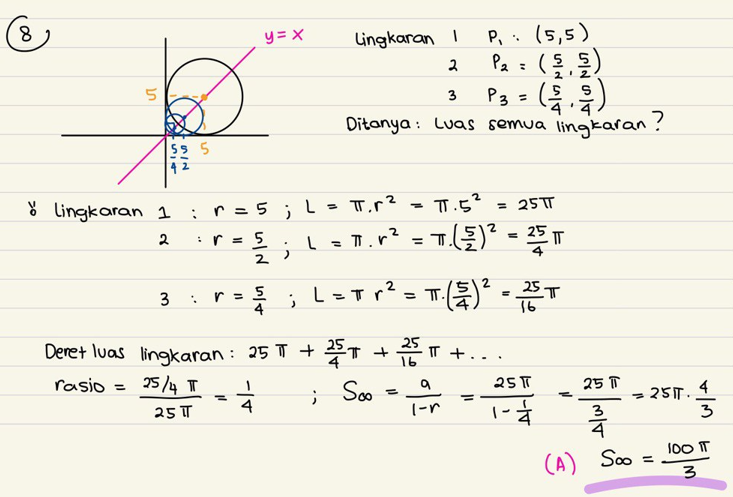 8
y = x
5
5/4 5/2 5
Lingkaran 1 P₁ : (5,5)
2 P₂ = (5/2, 5/2)
3 P₃ = (5/4, 5/4)
Ditanya : Luas semua lingkaran ?
Lingkaran 1 : r = 5 ; L = π.r² = π.5² = 25π
2 : r = 5/2 ; L = π.r² = π.(5/2)² = 25/4 π
3 : r = 5/4 ; L = π r² = π.(5/4)² = 25/16 π
Deret luas lingkaran : 25 π + 25/4 π + 25/16 π + ...
rasio = (25/4 π)/(25 π) = 1/4 ; S∞ = a/(1-r) = 25π/(1 - 1/4) = 25π/(3/4) = 25π . 4/3
(A) S∞ = 100π/3